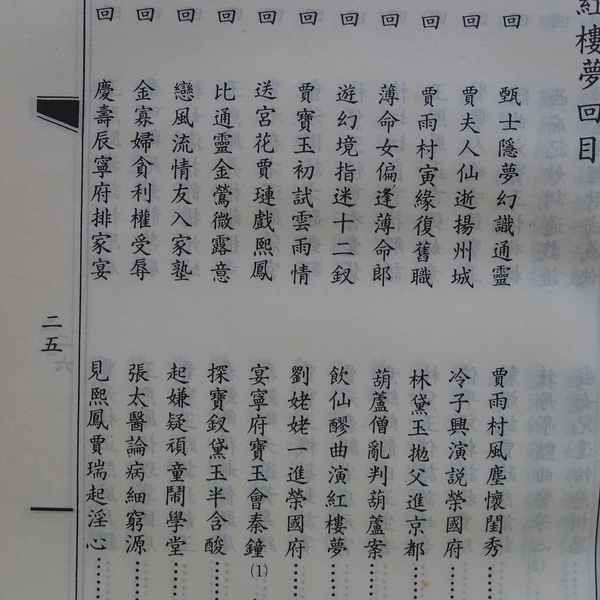 紅樓夢回目
回 甄士隱夢幻識通靈 賈雨村風塵懷閨秀
回 賈夫人仙逝揚州城 冷子興演說榮國府
回 賈雨村寅緣復舊職 林黛玉拋父進京都
回 薄命女偏逢薄命郎 葫蘆僧亂判葫蘆案
回 遊幻境指迷十二釵 飲仙醪曲演紅樓夢
回 賈寶玉初試雲雨情 劉姥姥一進榮國府
回 送宮花賈璉戲熙鳳 宴寧府寶玉會秦鐘(1)
回 比通靈金鶯微露意 探寶釵黛玉半含酸
回 戀風流情友入家塾 起嫌疑頑童鬧學堂
回 金寡婦貪利權受辱 張太醫論病細窮源
回 慶壽辰寧府排家宴 見熙鳳賈瑞起淫心
二五